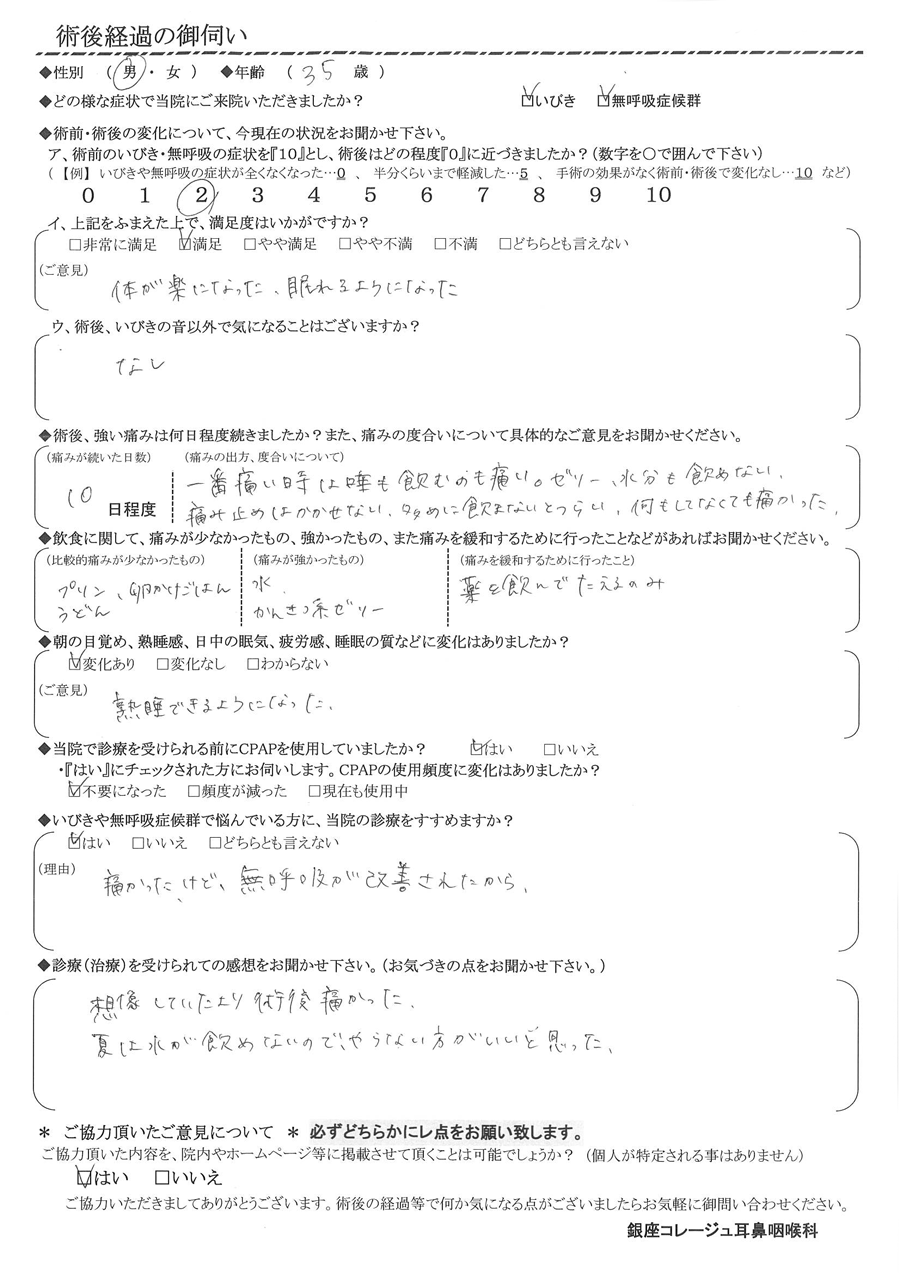 術後経過の御伺い
◆性別 （ 男 ・ 女 ） ◆年齢 （ 35 歳 ）
◆どの様な症状で当院にご来院いただきましたか？ ☑いびき ☑無呼吸症候群
◆術前・術後の変化について、今現在の状況をお聞かせ下さい。
ア、術前のいびき・無呼吸の症状を『10』とし、術後はどの程度『0』に近づきましたか？（数字を〇で囲んで下さい）
（ 【例】 いびきや無呼吸の症状が全くなくなった…0 、 半分くらいまで軽減した…5 、 手術の効果がなく術前・術後で変化なし…10 など）
0 1 2 3 4 5 6 7 8 9 10
イ、上記をふまえた上で、満足度はいかがですか？
□非常に満足 ☑満足 □やや満足 □やや不満 □不満 □どちらとも言えない
（ご意見）
体が楽になった、眠れるようになった
ウ、術後、いびきの音以外で気になることはございますか？
なし
◆術後、強い痛みは何日程度続きましたか？また、痛みの度合いについて具体的なご意見をお聞かせください。
（痛みが続いた日数） （痛みの出方、度合いについて）
一番痛い時は唾も飲むのも痛い。ゼリー、水分も飲めない、
10 日程度
痛み止めはかかせない、多めに飲まないとつらい、何もしてなくても痛かった、
◆飲食に関して、痛みが少なかったもの、強かったもの、また痛みを緩和するために行ったことなどがあればお聞かせください。
（比較的痛みが少なかったもの） （痛みが強かったもの） （痛みを緩和するために行ったこと）
プリン、卵かけごはん 水、 薬を飲んでたえるのみ
うどん かんきつ系ゼリー
◆朝の目覚め、熟睡感、日中の眠気、疲労感、睡眠の質などに変化はありましたか？
☑変化あり □変化なし □わからない
（ご意見）
熟睡できるようになった、
◆当院で診療を受けられる前にCPAPを使用していましたか？ ☑はい □いいえ
・『はい』にチェックされた方にお伺いします。CPAPの使用頻度に変化はありましたか？
☑不要になった □頻度が減った □現在も使用中
◆いびきや無呼吸症候群で悩んでいる方に、当院の診療をすすめますか？
☑はい □いいえ □どちらとも言えない
（理由）
痛かったけど、無呼吸が改善されたから、
◆診療（治療）を受けられての感想をお聞かせ下さい。（お気づきの点をお聞かせ下さい。）
想像していたより術後痛かった、
夏は水が飲めないので、やらない方がいいと思った、
＊ ご協力頂いたご意見について ＊ 必ずどちらかにレ点をお願い致します。
ご協力頂いた内容を、院内やホームページ等に掲載させて頂くことは可能でしょうか？ （個人が特定される事はありません）
☑はい □いいえ
ご協力いただきましてありがとうございます。術後の経過等で何か気になる点がございましたらお気軽に御問い合わせください。
銀座コレージュ耳鼻咽喉科